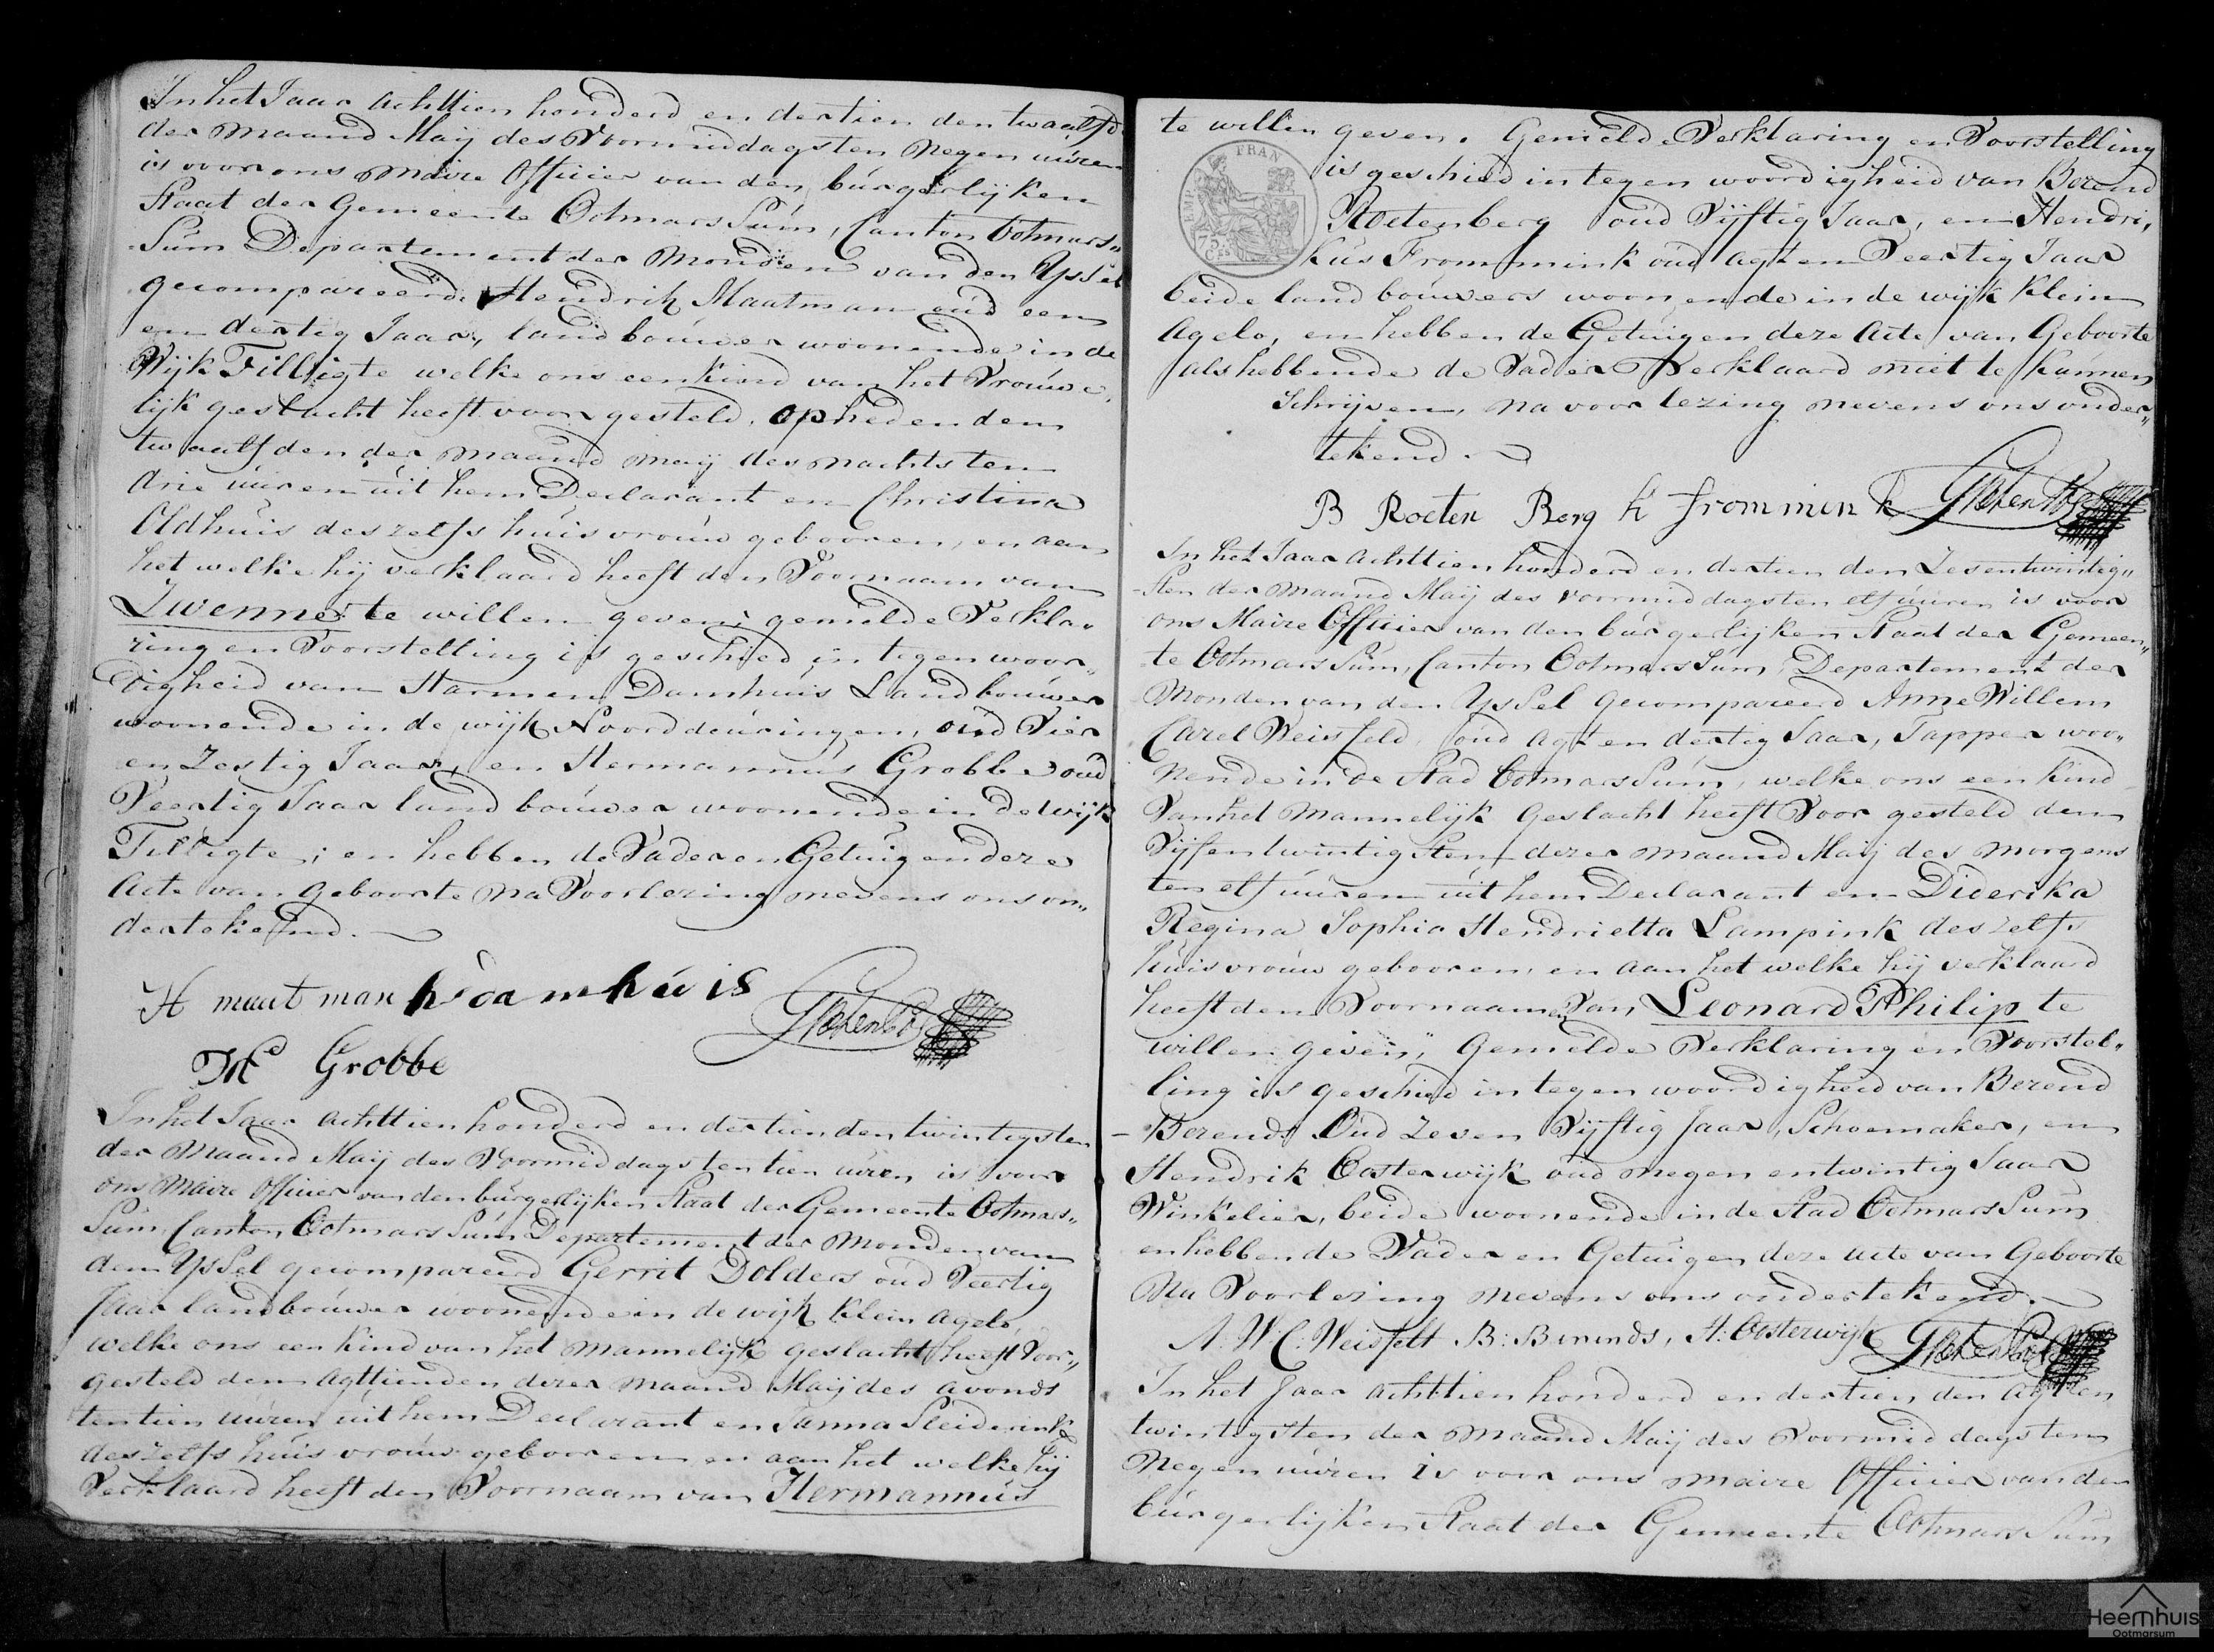 In het Jaar achttien honderd en dertien den twaalfd
der maand Maij des Voormiddags ten Negen uúren
is voor ons maire Officier van den búrgerlijken
Staat der Gemeente OotmarsSúm, Canton Ootmars„
Súm Departement der Monden van den YsSel
gecompareerd Hendrik Maatman oúd een
en dertig Jaar, landboúwer woonende in de
Wijk Tilligte welke ons een kind van het Vroúwe„
lijk geslacht heeft voor gesteld, op heden den
twaalfden der maand maij des nachts ten
drie uúren úit hem Declarant en Christina
Oldhúis deszelfs húisvroúw gebooren, en aan
het welke hij verklaard heeft den Voornaam van
Zwenne te willen geven; gemelde Verkla„
ring en Voorstelling is geschied in tegenwoor„
digheid van Harmen Damhúis Landboúwer
woonende in de wijk Noorddeúringen, oúd Vier
en Zestig Jaar, en Hermannús Grobbe oud
Veertig Jaar landboúwer woonende in de wijk
Tilligte; en hebben de Vader en Getuigen deze
Acte van Geboorte na Voorlezing nevens ons on„
dertekend.
H maatman h damhúis
Hs Grobbe
In het Jaar achttien honderd en dertien den twintigsten
der Maand Maij des Voormiddags ten tien uúren is voor
ons Maire Officier van den búrgerlijken Staat der Gemeente Ootmars„
Súm Canton OotmarsSúm Departement der Monden van
den YsSel gecompareerd Gerrit Dolders oúd Veertig
Jaar landboúwer woonende in de wijk Klein Agelo,
welke ons een kind van het Mannelijk geslacht heeft Voor„
gesteld den agttienden dezer maand Maij des avonds
ten tien uúren úit hem Declarant en Janna Sleiderink
deszelfs húisvroúw gebooren en aan het welke hij
Verklaard heeft den Voornaam van Hermannús
te willen geven. Gemelde Verklaring en Voorstelling
FRAN
EMP
75
Cs
is geschied in tegenwoordigheid van Berend
Roetenberg oúd Vijftig Jaar, en Hendri„
kús Frommink oúd agt en Veertig Jaar
beide landboúwers woonende in de wijk Klein
Agelo, en hebben de Getúigen deze Acte van Geboorte
als hebbende de Vader Verklaard niet te kunnen
Schrijven, na voorlezing nevens ons onder„
tekend.
B Roeten Berg H frommink
In het Jaar achttien honderd en dertien den Zesentwintig„
sten der Maand Maij des voormiddags ten elf uúren is voor
ons Maire Officier van den búrgerlijken Staat der Gemeen„
te OotmarsSúm, Canton OotmarsSúm, Departement der
Monden van den YsSel gecompareerd Anne Willem
Carel Weisfeld, oúd agt en dertig Jaar, Tapper woo„
nende in de Stad OotmarsSúm, welke ons een kind
van het Mannelijk Geslacht heeft Voor gesteld den
Vijfentwintigsten dezer maand Maij des morgens
ten elf uúren úit hem Declarant en Diderika
Regina Sophia Hendrietta Lampink deszelfs
húisvroúw gebooren, en aan het welke hij verklaard
heeft den Voornaamen van Leonard Philip te
willen geven, Gemelde Verklaring en Voorstel„
ling is geschied in tegenwoordigheid van Berend
Berends Oúd zeven Vijftig Jaar, Schoemaker, en
Hendrik Oosterwijk oúd negen entwintig Jaar
Winkelier, beide woonende in de Stad OotmarsSúm
en hebben de Vader en Getúigen deze acte van Geboorte
Na Voorlezing nevens ons ondertekend.
A. W. C. Weisfelt B: Berends, H: Oosterwijk
In het Jaar achttien honderd en dertien, den agt en
twintigsten der Maand Maij des Voormiddags ten
Negen uúren is voor ons maire Officier van den
búrgerlijken Staat der Gemeente OotmarsSúm
Heemhuis
Ootmarsum